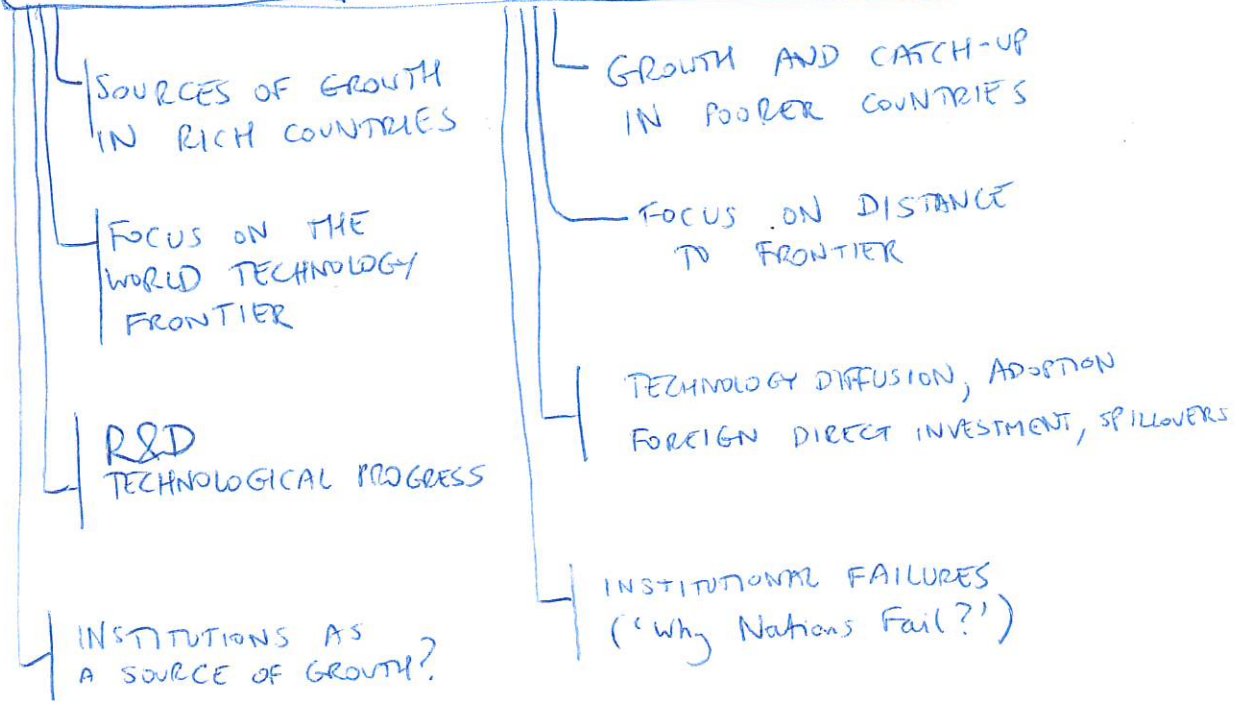 SOURCES OF GROWTH
IN RICH COUNTRIES
FOCUS ON THE
WORLD TECHNOLOGY
FRONTIER
R&D
TECHNOLOGICAL PROGRESS
INSTITUTIONS AS
A SOURCE OF GROWTH?
GROWTH AND CATCH-UP
IN POORER COUNTRIES
FOCUS ON DISTANCE
TO FRONTIER
TECHNOLOGY DIFFUSION, ADOPTION
FOREIGN DIRECT INVESTMENT, SPILLOVERS
INSTITUTIONAL FAILURES
('Why Nations Fail?')